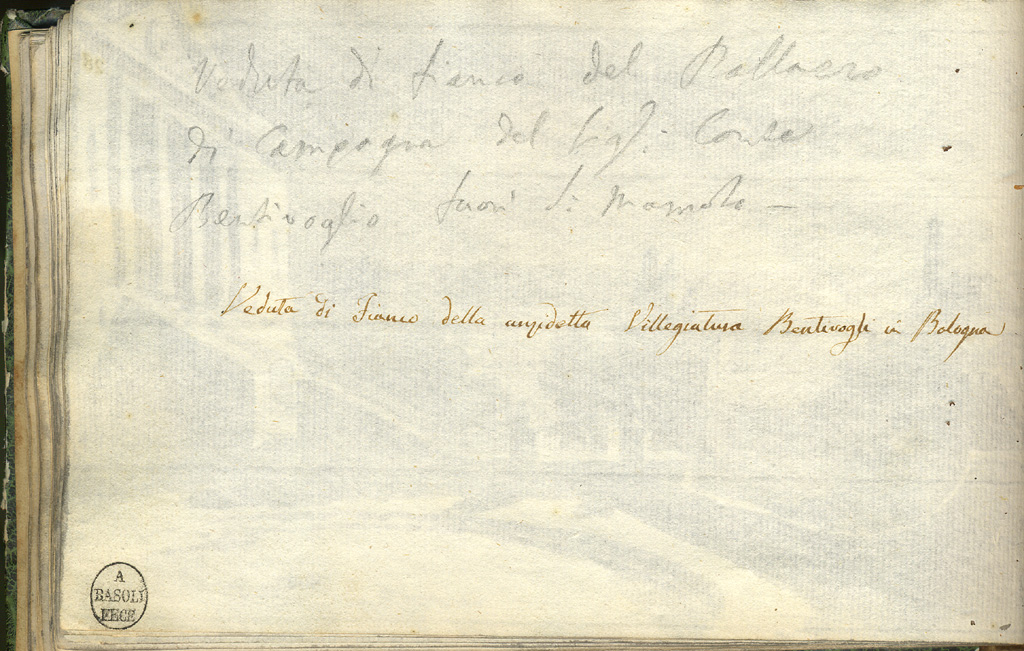 Veduta di fianco del Pallazzo
di Campogna del Sigr: Conte
Bentivoglio fuori di Mamolo —
Veduta di Fianco della anzidetta Villegiatura Bentivogli in Bologna
A
BASOLI
FECE
28